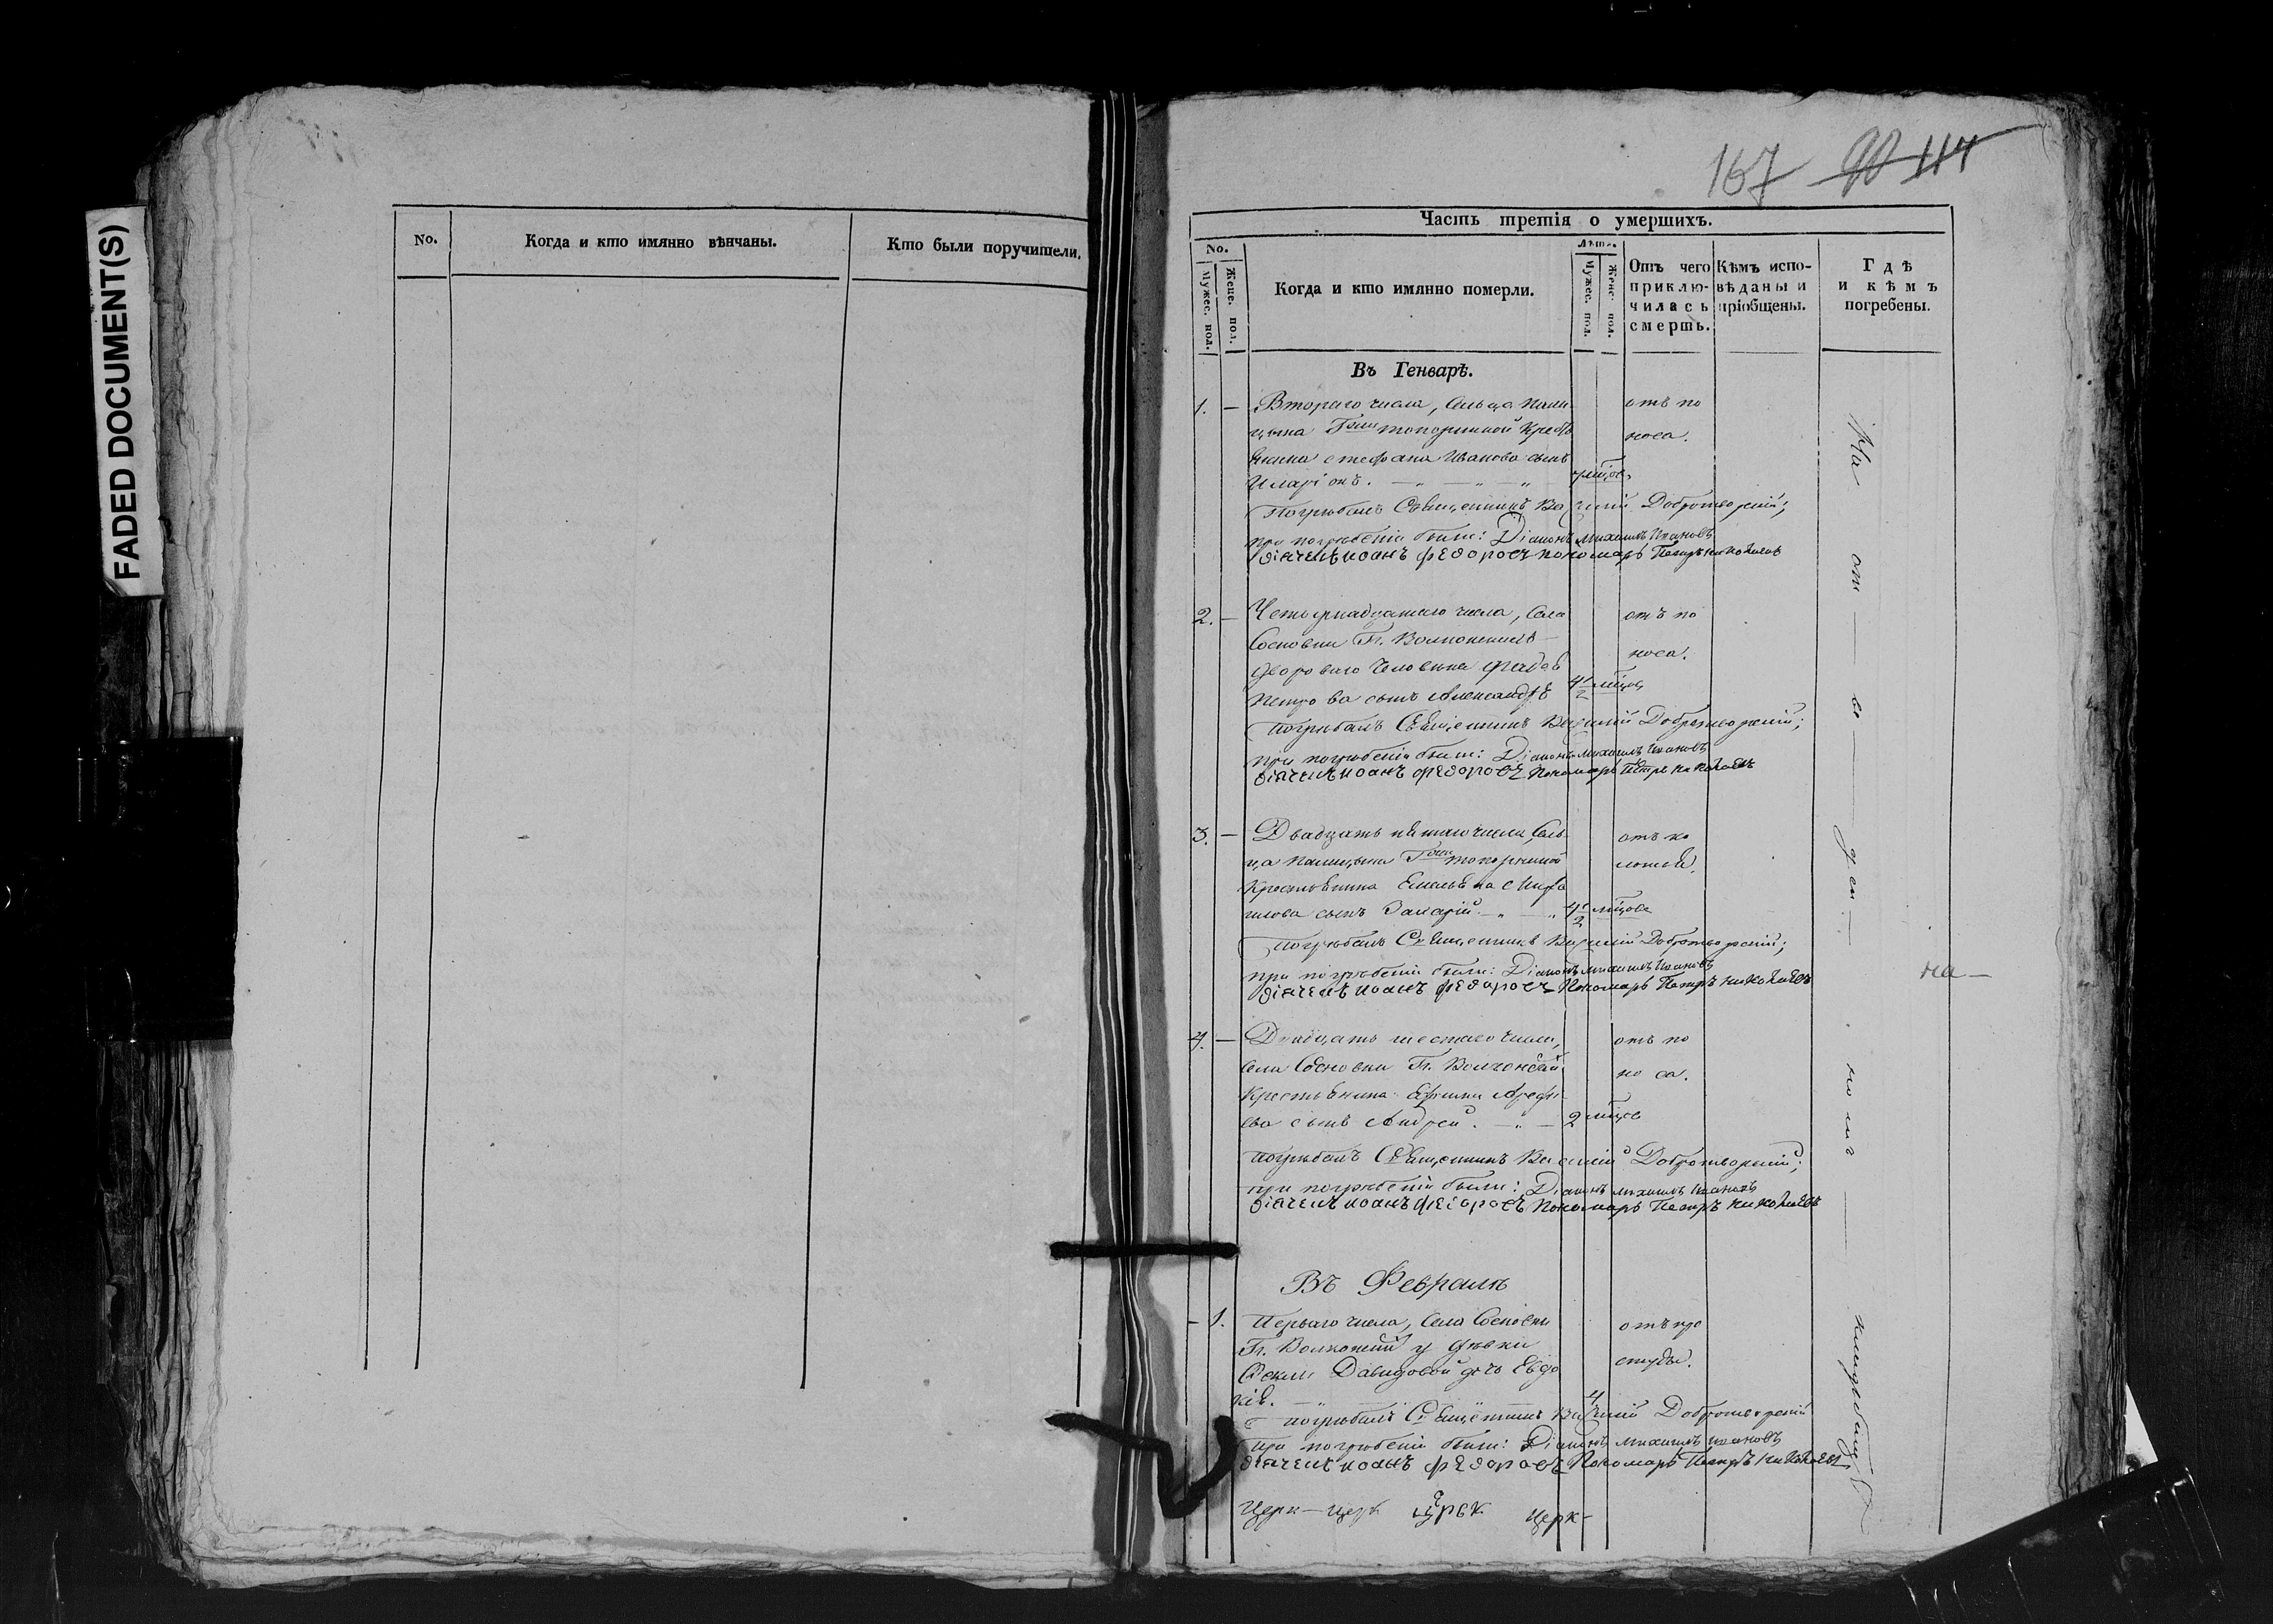 FADED DOCUMENT(S)
No.
Когда и кто имянно вѣнчаны.
Кто были поручители.
167 90 117
Часть третія о умершихъ.
No.
Мужес. пол.
Женс. пол.
Когда и кто имянно померли.
Лѣта.
Мужес. пол.
Женс. пол.
Отъ чего приклю-
чилась смерть.
Кѣмъ испо-
вѣданы и
пріобщены.
Гдѣ
и кѣмъ
погребены.
Въ Генварѣ.
1. — Втораго числа, Сельца отъ по
Топорниной Крестья носа.
нина Стефана Иванова сынъ
Иларіонъ.
Погребалъ Священникъ Василій Добротворскій;
при погребеніи были: Діаконъ Михаилъ Ивановъ
діячекъ иоанъ федоровъ пономарь Петръ николаевъ
2. — Четырнадцатаго числа, Села отъ по
Сосновки Гг. Волконскихъ носа.
двороваго человека Фадея
Петрова сынъ Александръ 4 1/2 мѣсцов
погребалъ Священникъ Василій Добротворскій;
при погребеніи были: Діаконъ Михаилъ Ивановъ
діячекъ иоанъ федоровъ Пономарь Петръ николаевъ
3. — Двадцать пятаго числа, Сель- отъ ко
ца Топорниной лотья.
Крестьянина Емельяна
сынъ Захарій 4 1/2 мѣсцов
погребалъ Священникъ Василій Добротворскій;
при погребеніи были: Діаконъ Михаилъ Ивановъ
діячекъ иоанъ федоровъ Пономарь Петръ николаевъ
4. — Двадцать шестаго числа, отъ по
Села Сосновки Гг. Волконской носа.
Крестьянина Арефь-
ева сынъ Андрей. 2 мѣсцов
погребалъ Священникъ Василій Добротворскій;
при погребеніи были: Діаконъ Михаилъ Ивановъ
діячекъ иоанъ федоровъ Пономарь Петръ николаевъ
Въ Февралѣ
— 1. Перваго числа, Села Сосновки отъ про
Гг. Волконской у дѣвки студы.
Феклы Давидовой дочь Евдо
кія. 4
погребалъ Священникъ Василій Добротворскій
при погребеніи были: Діаконъ Михаилъ Ивановъ
діячекъ иоанъ федоровъ Пономарь Петръ николаевъ
На от — ве — ден — номъ — кладбищѣ
на —
Церк — церк церк церк —